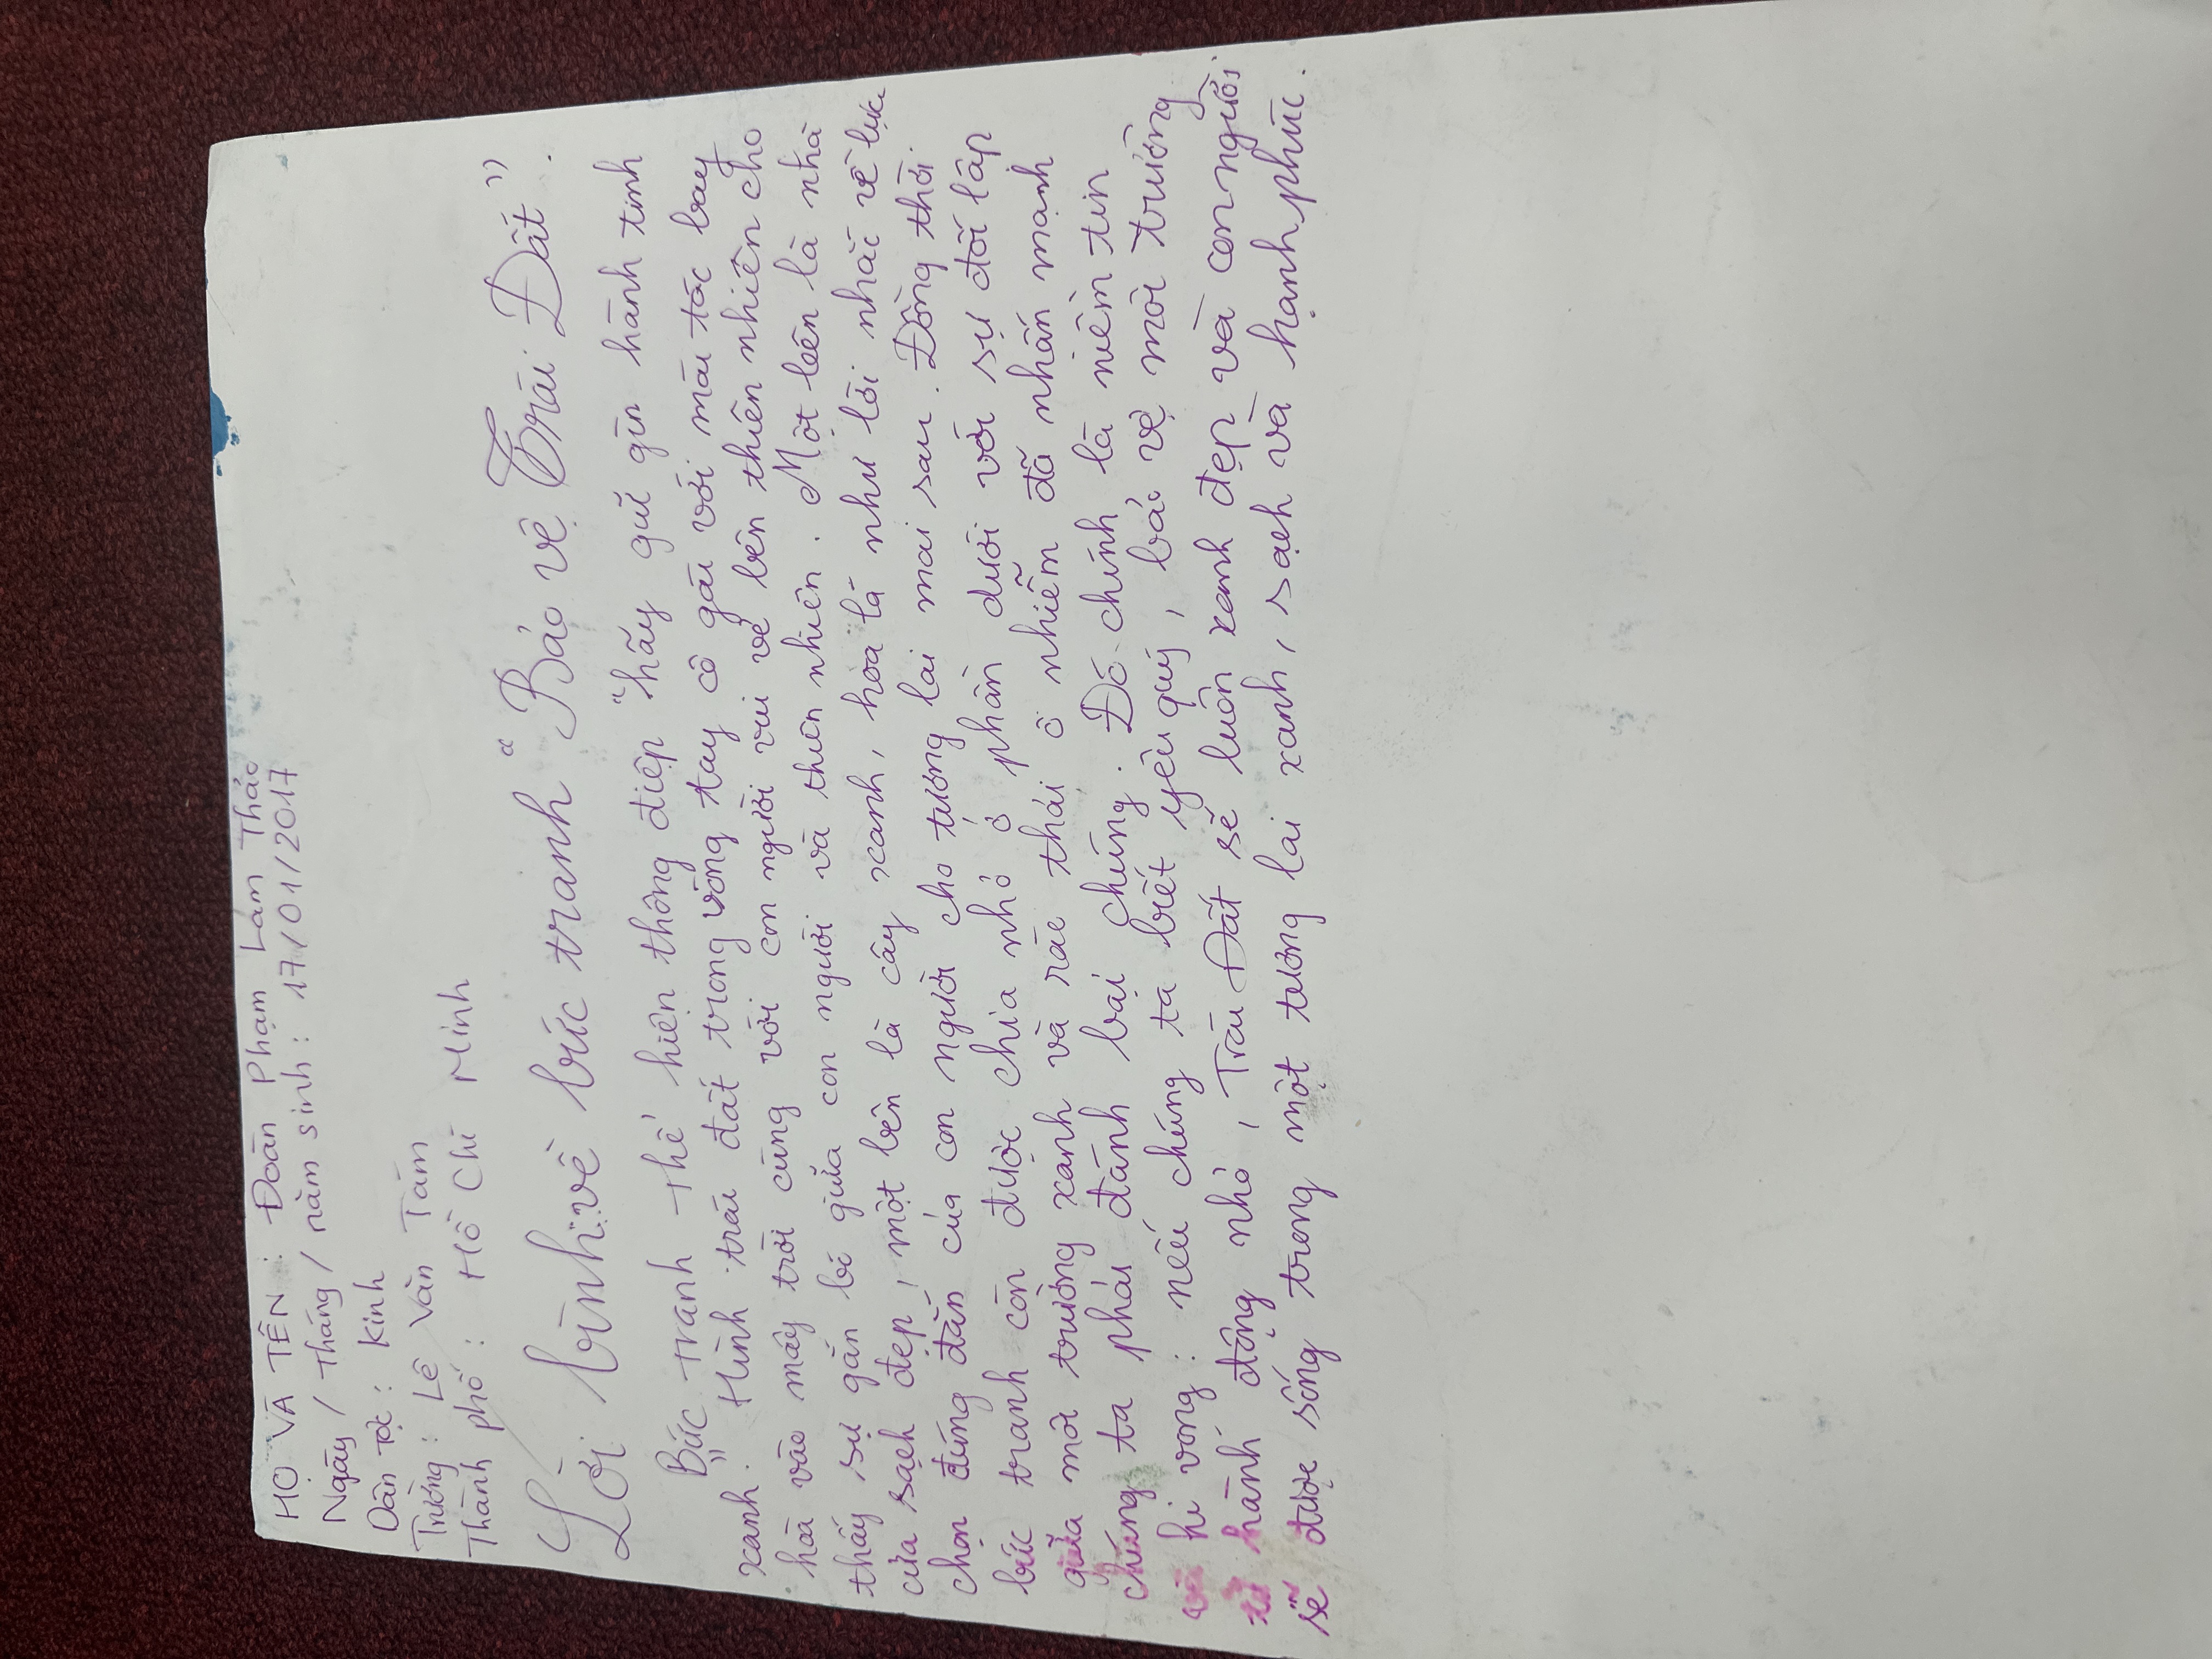 HỌ VÀ TÊN : Đoàn Phạm Lam Thảo
Ngày / tháng / năm sinh : 17/01/2017
Dân tộc : Kinh
Trường : Lê Văn Tám
Thành phố : Hồ Chí Minh
Lời bình về bức tranh “ Bảo vệ Trái Đất ”.
Bức tranh thể hiện thông điệp “hãy giữ gìn hành tinh
xanh”. Hình trái đất trong vòng tay cô gái với mái tóc bay
hoà vào mây trời cùng với con người vui vẻ bên thiên nhiên cho
thấy sự gắn bó giữa con người và thiên nhiên. Một bên là nhà
cửa sạch đẹp, một bên là cây xanh, hoa lá như lời nhắc về lựa
chọn đúng đắn của con người cho tương lai mai sau. Đồng thời
bức tranh còn được chia nhỏ ở phần dưới với sự đối lập
giữa môi trường xanh và rác thải ô nhiễm đã nhấn mạnh
chúng ta phải đánh bại chúng. Đó chính là niềm tin
và hi vọng : nếu chúng ta biết yêu quý, bảo vệ môi trường
từ hành động nhỏ, Trái Đất sẽ luôn xanh đẹp và con người
sẽ được sống trong một tương lai xanh, sạch và hạnh phúc.